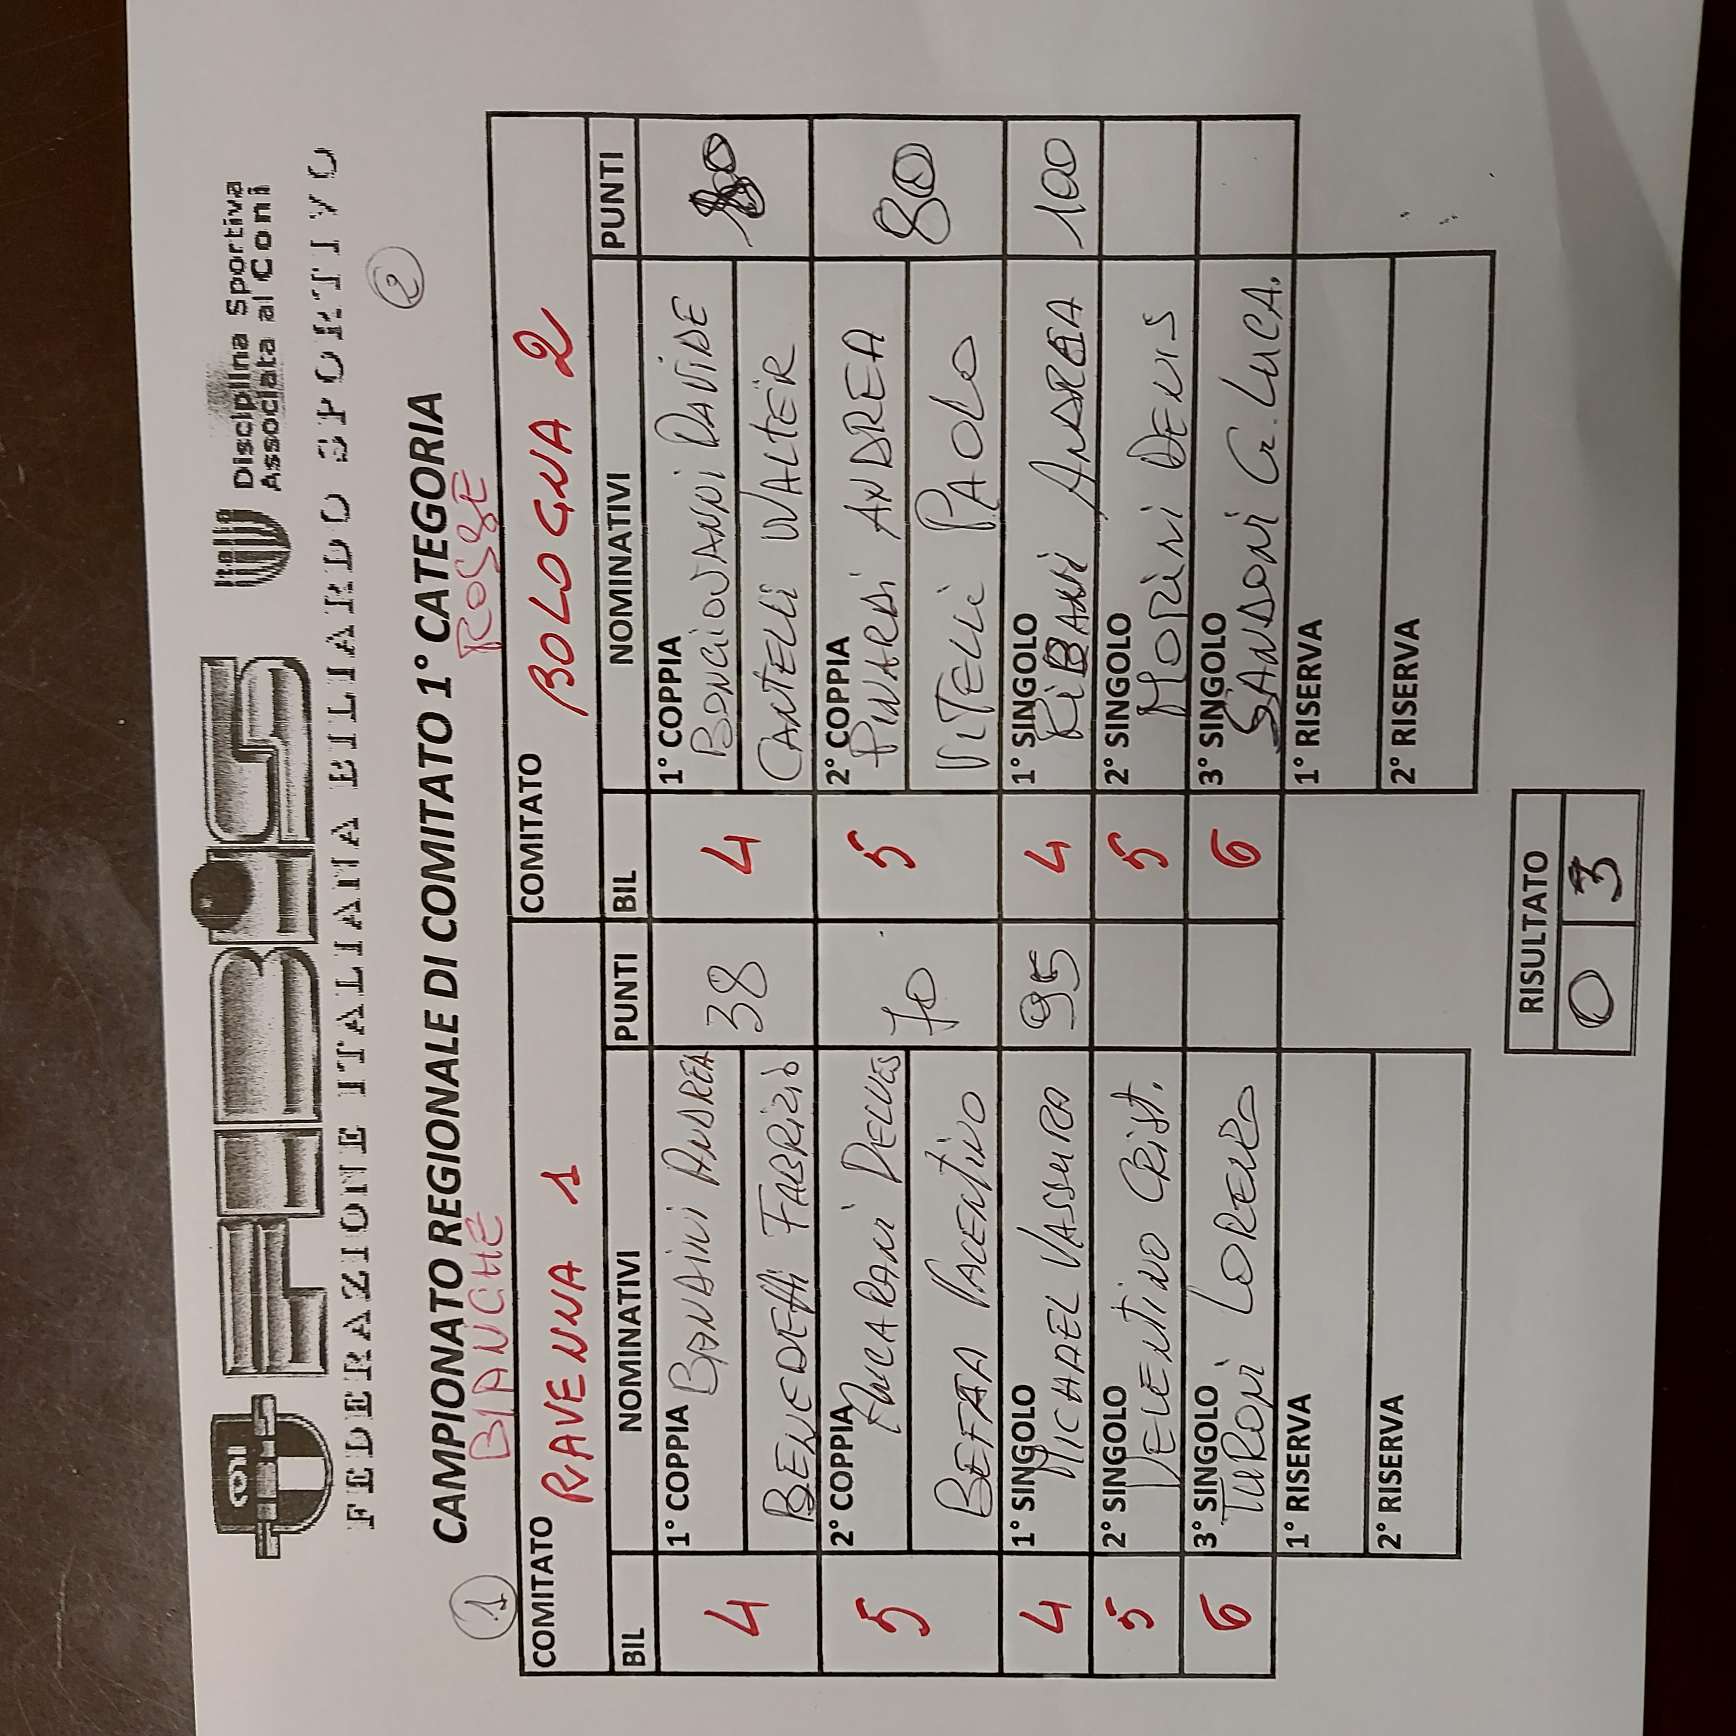 FEBiS
Disciplina Sportiva
Associata al Coni
FEDERAZIONE ITALIANA BILIARDO SPORTIVO
1
2
CAMPIONATO REGIONALE DI COMITATO 1° CATEGORIA
BIANCHE ROSSE
COMITATO RAVENNA 1 COMITATO BOLOGNA 2
BIL NOMINATIVI PUNTI BIL NOMINATIVI PUNTI
4 1° COPPIA BANDINI ANDREA 38 4 1° COPPIA BONGIOVANNI DAVIDE 80
BENEDETTI FABRIZIO CANTELLI WALTER
5 2° COPPIA DELUES 70 5 2° COPPIA PINARDI ANDREA 80
BEFFA PIACENTINO VITELLI PAOLO
4 1° SINGOLO MICHAEL VASSURO 95 4 1° SINGOLO RIBANI ANDREA 100
5 2° SINGOLO VELENTINO CRIST. 5 2° SINGOLO MORINI DENIS
6 3° SINGOLO TURONI LORENZO 6 3° SINGOLO SANDONI G. LUCA.
1° RISERVA 1° RISERVA
2° RISERVA 2° RISERVA
RISULTATO
0 3